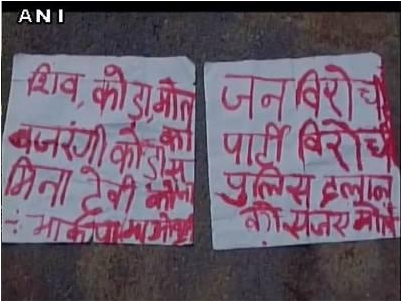 ANI
शिव, कोडा, मोल
बजरंगी कोडा स को
मिना देवी
जन विरोधी
पार्टी विरोधी
पुलिस दलाल
को सजर मोत